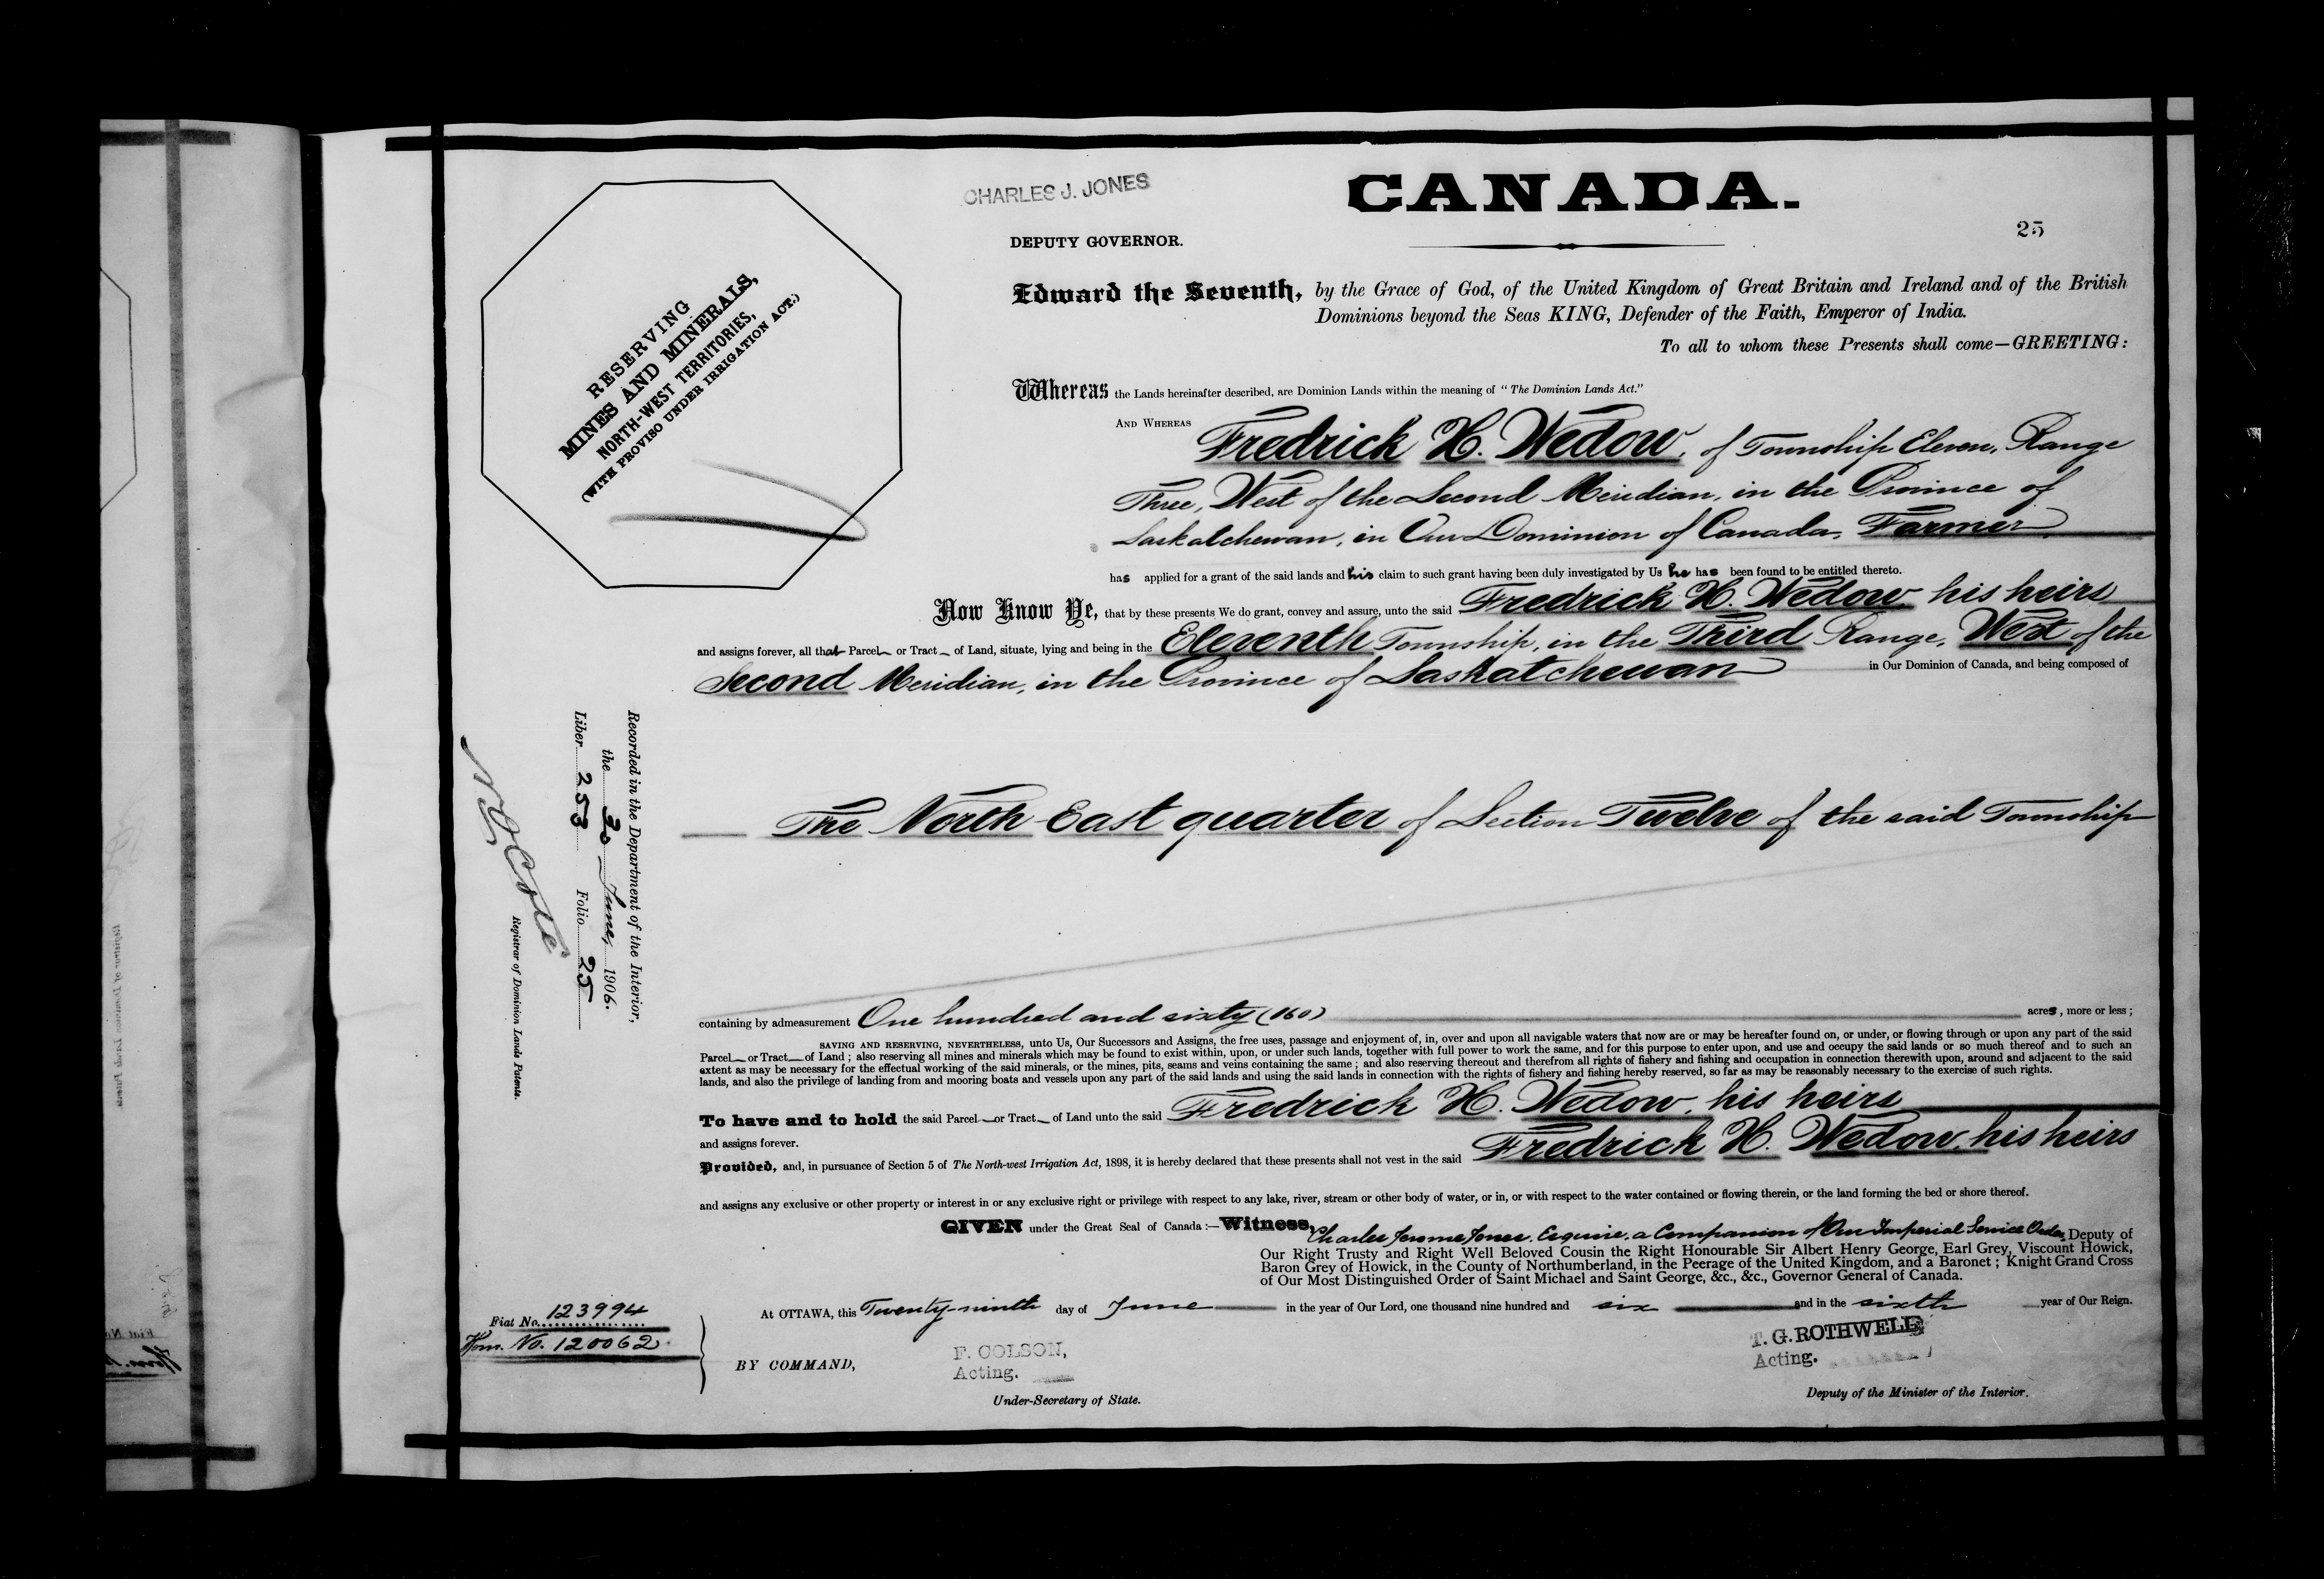 CHARLES J. JONES
CANADA.
DEPUTY GOVERNOR.
25
RESERVING
MINES AND MINERALS,
NORTH-WEST TERRITORIES,
(WITH PROVISO UNDER IRRIGATION ACT.)
Edward the Seventh, by the Grace of God, of the United Kingdom of Great Britain and Ireland and of the British
Dominions beyond the Seas KING, Defender of the Faith, Emperor of India.
To all to whom these Presents shall come—GREETING:
Whereas the Lands hereinafter described, are Dominion Lands within the meaning of "The Dominion Lands Act."
AND WHEREAS Fredrick H. Wedow, of Township Eleven, Range
Three, West of the Second Meridian, in the Province of
Saskatchewan, in Our Dominion of Canada, Farmer
has applied for a grant of the said lands and his claim to such grant having been duly investigated by Us he has been found to be entitled thereto.
Now Know Ye, that by these presents We do grant, convey and assure, unto the said Fredrick H. Wedow, his heirs
and assigns forever, all that Parcel or Tract of Land, situate, lying and being in the Eleventh Township, in the Third Range, West of the
Second Meridian, in the Province of Saskatchewan in Our Dominion of Canada, and being composed of
The North East quarter of Section Twelve of the said Township
Recorded in the Department of the Interior,
the 30 June, 1906.
Liber 253 Folio 25
N O Coté
Registrar of Dominion Lands Patents.
containing by admeasurement One hundred and sixty (160) acres, more or less;
SAVING AND RESERVING, NEVERTHELESS, unto Us, Our Successors and Assigns, the free uses, passage and enjoyment of, in, over and upon all navigable waters that now are or may be hereafter found on, or under, or flowing through or upon any part of the said
Parcel or Tract of Land; also reserving all mines and minerals which may be found to exist within, upon, or under such lands, together with full power to work the same, and for this purpose to enter upon, and use and occupy the said lands or so much thereof and to such an
extent as may be necessary for the effectual working of the said minerals, or the mines, pits, seams and veins containing the same; and also reserving thereout and therefrom all rights of fishery and fishing and occupation in connection therewith upon, around and adjacent to the said
lands, and also the privilege of landing from and mooring boats and vessels upon any part of the said lands and using the said lands in connection with the rights of fishery and fishing hereby reserved, so far as may be reasonably necessary to the exercise of such rights.
To have and to hold the said Parcel or Tract of Land unto the said Fredrick H. Wedow, his heirs
and assigns forever.
Provided, and, in pursuance of Section 5 of The North-west Irrigation Act, 1898, it is hereby declared that these presents shall not vest in the said Fredrick H. Wedow, his heirs
and assigns any exclusive or other property or interest in or any exclusive right or privilege with respect to any lake, river, stream or other body of water, or in, or with respect to the water contained or flowing therein, or the land forming the bed or shore thereof.
GIVEN under the Great Seal of Canada:—Witness, Charles Jerome Jones, Esquire, a Companion of Our Imperial Service Order, Deputy of
Our Right Trusty and Right Well Beloved Cousin the Right Honourable Sir Albert Henry George, Earl Grey, Viscount Howick,
Baron Grey of Howick, in the County of Northumberland, in the Peerage of the United Kingdom, and a Baronet; Knight Grand Cross
of Our Most Distinguished Order of Saint Michael and Saint George, &c., &c., Governor General of Canada.
At OTTAWA, this Twenty-ninth day of June in the year of Our Lord, one thousand nine hundred and six and in the sixth year of Our Reign.
Fiat No. 123994
Hom. No. 120062
BY COMMAND,
F. COLSON,
Acting.
Under-Secretary of State.
T. G. ROTHWELL
Acting.
Deputy of the Minister of the Interior.